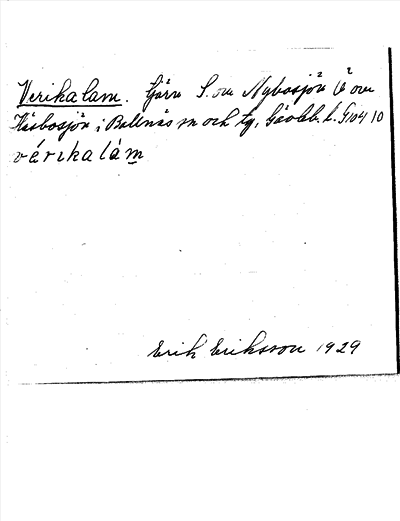 Verikalam. Tjärn S. om Nybosjön V om
Häsbosjön i Bollnäs sn och tg, Gävleb. l. G104 10
vérikalám
Erik Eriksson 1929